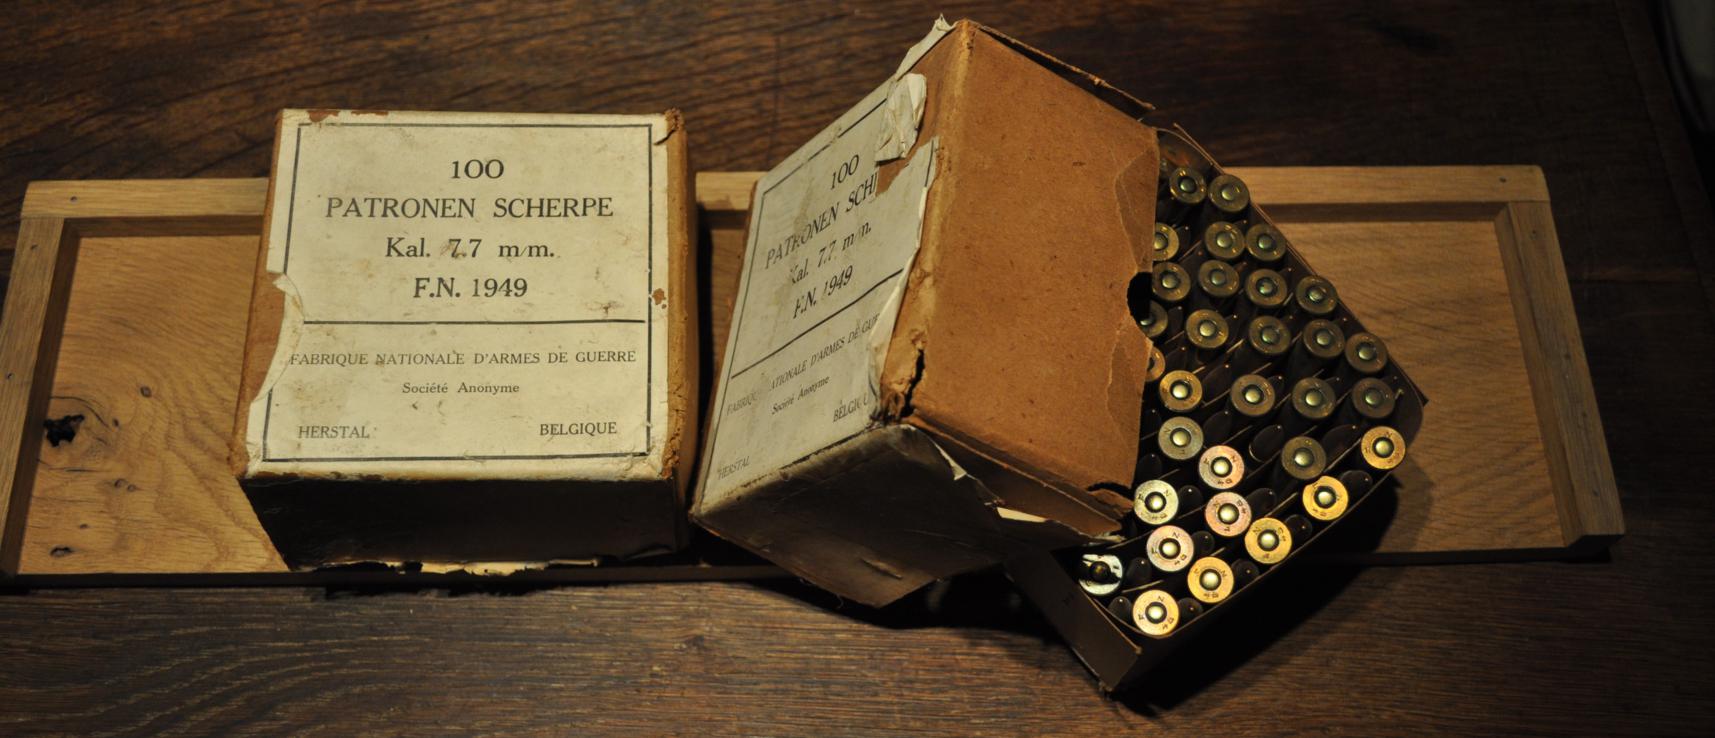 100
PATRONEN SCHERPE
Kal. 7.7 m/m.
F.N. 1949
FABRIQUE NATIONALE D'ARMES DE GUERRE
Société Anonyme
HERSTAL
BELGIQUE
100
PATRONEN SCH
Kal. 7.7 m/m.
F.N. 1949
FABRIQ ATIONALE D'ARMES DE GUER
Société Anonyme
HERSTAL
BELGIQU